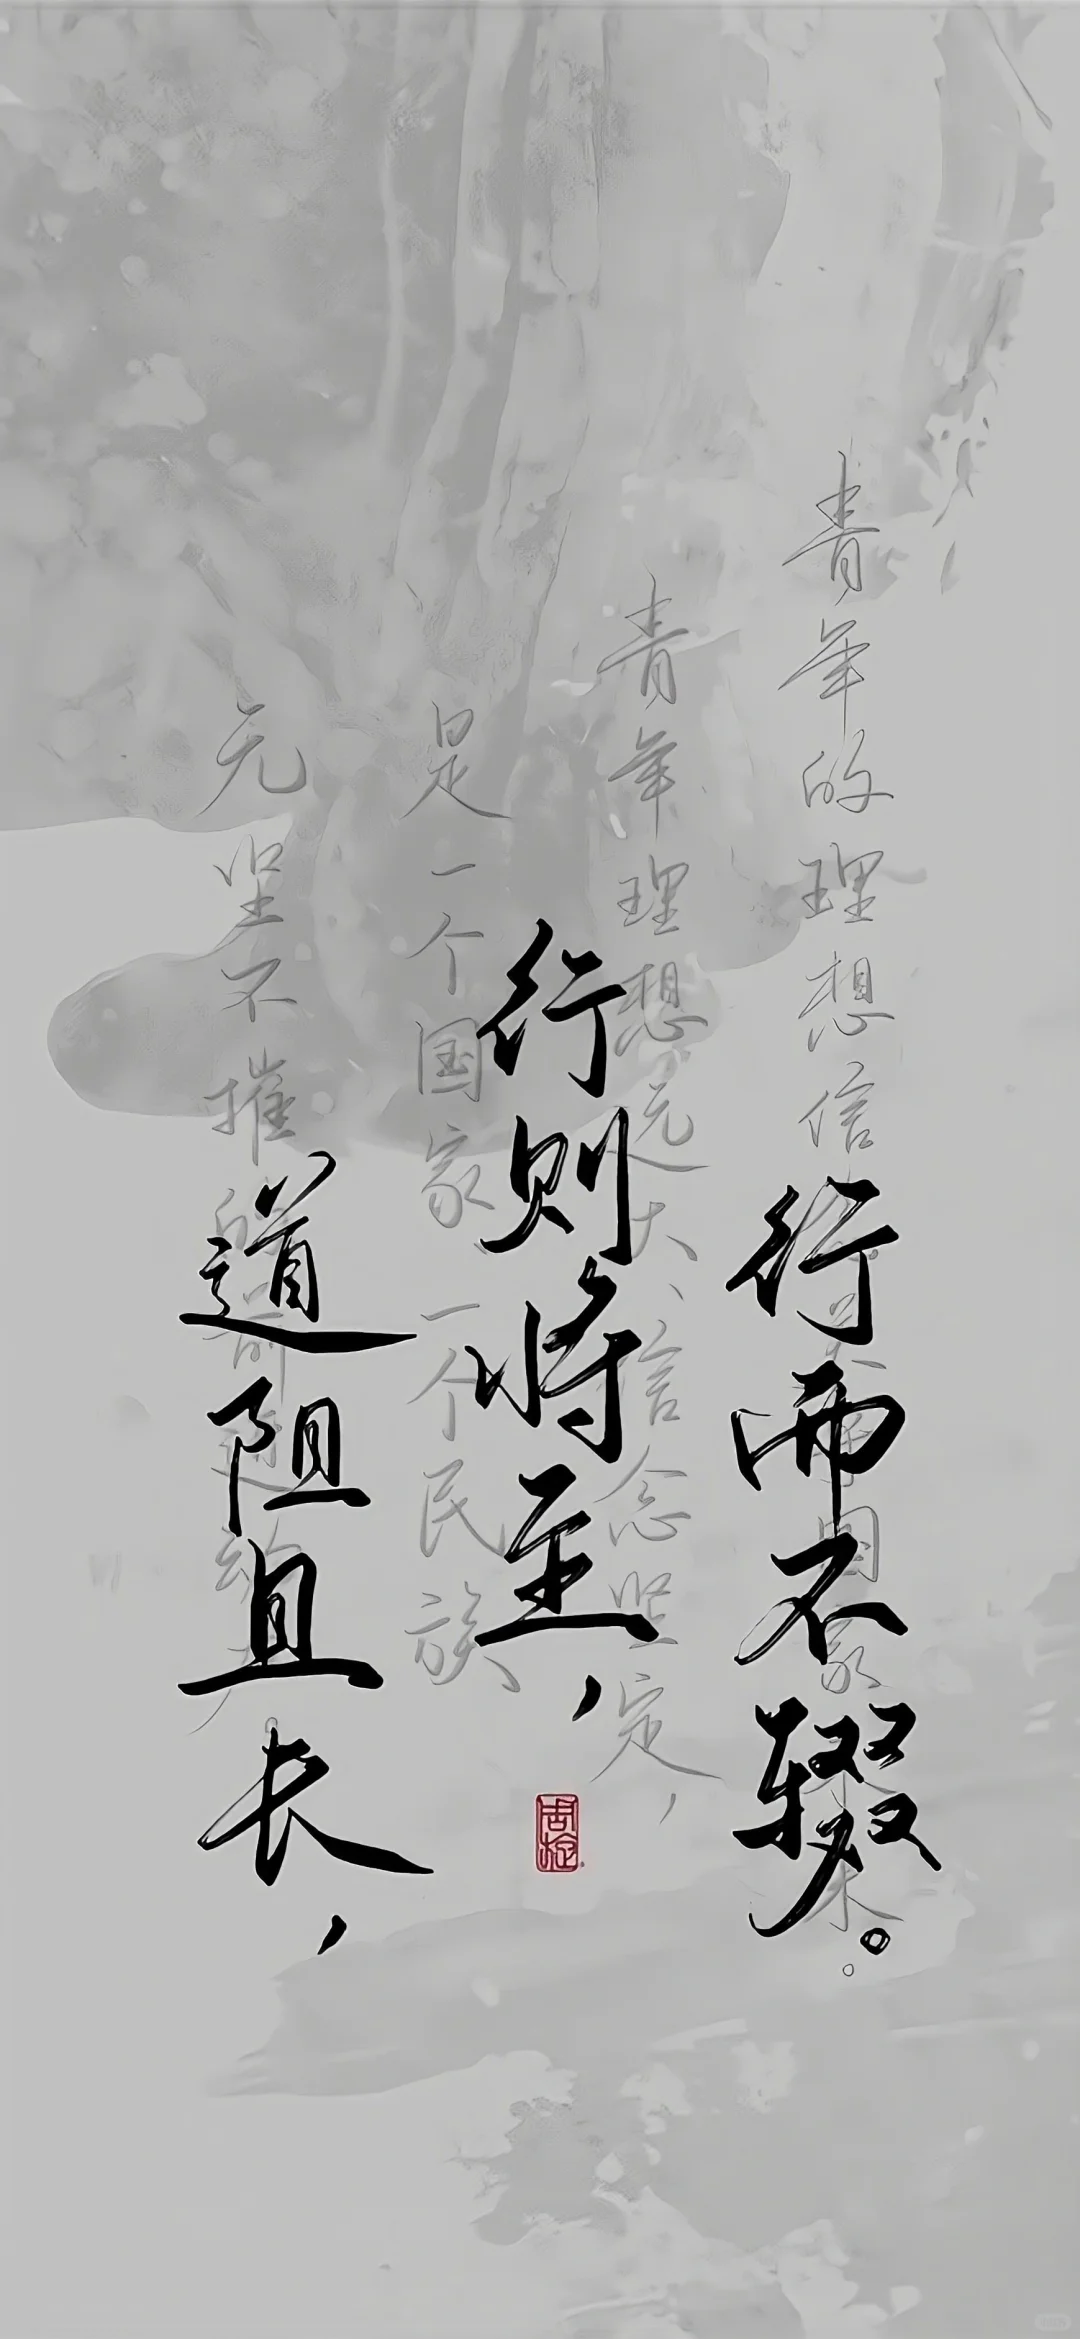 道阻且长，
行则将至，
行而不辍。
青年的理想信国家未来。
青年理想远大、信念坚定，
是一个国家、一个民族
无坚不摧的前进动力